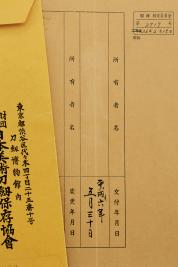 所有者名
所有者名
交付年月日
変更年月日
平成六年
五月三十日
東京都渋谷区代々木四丁目二十五番十号
刀剣博物館内
財団
日本美術刀剣保存協會